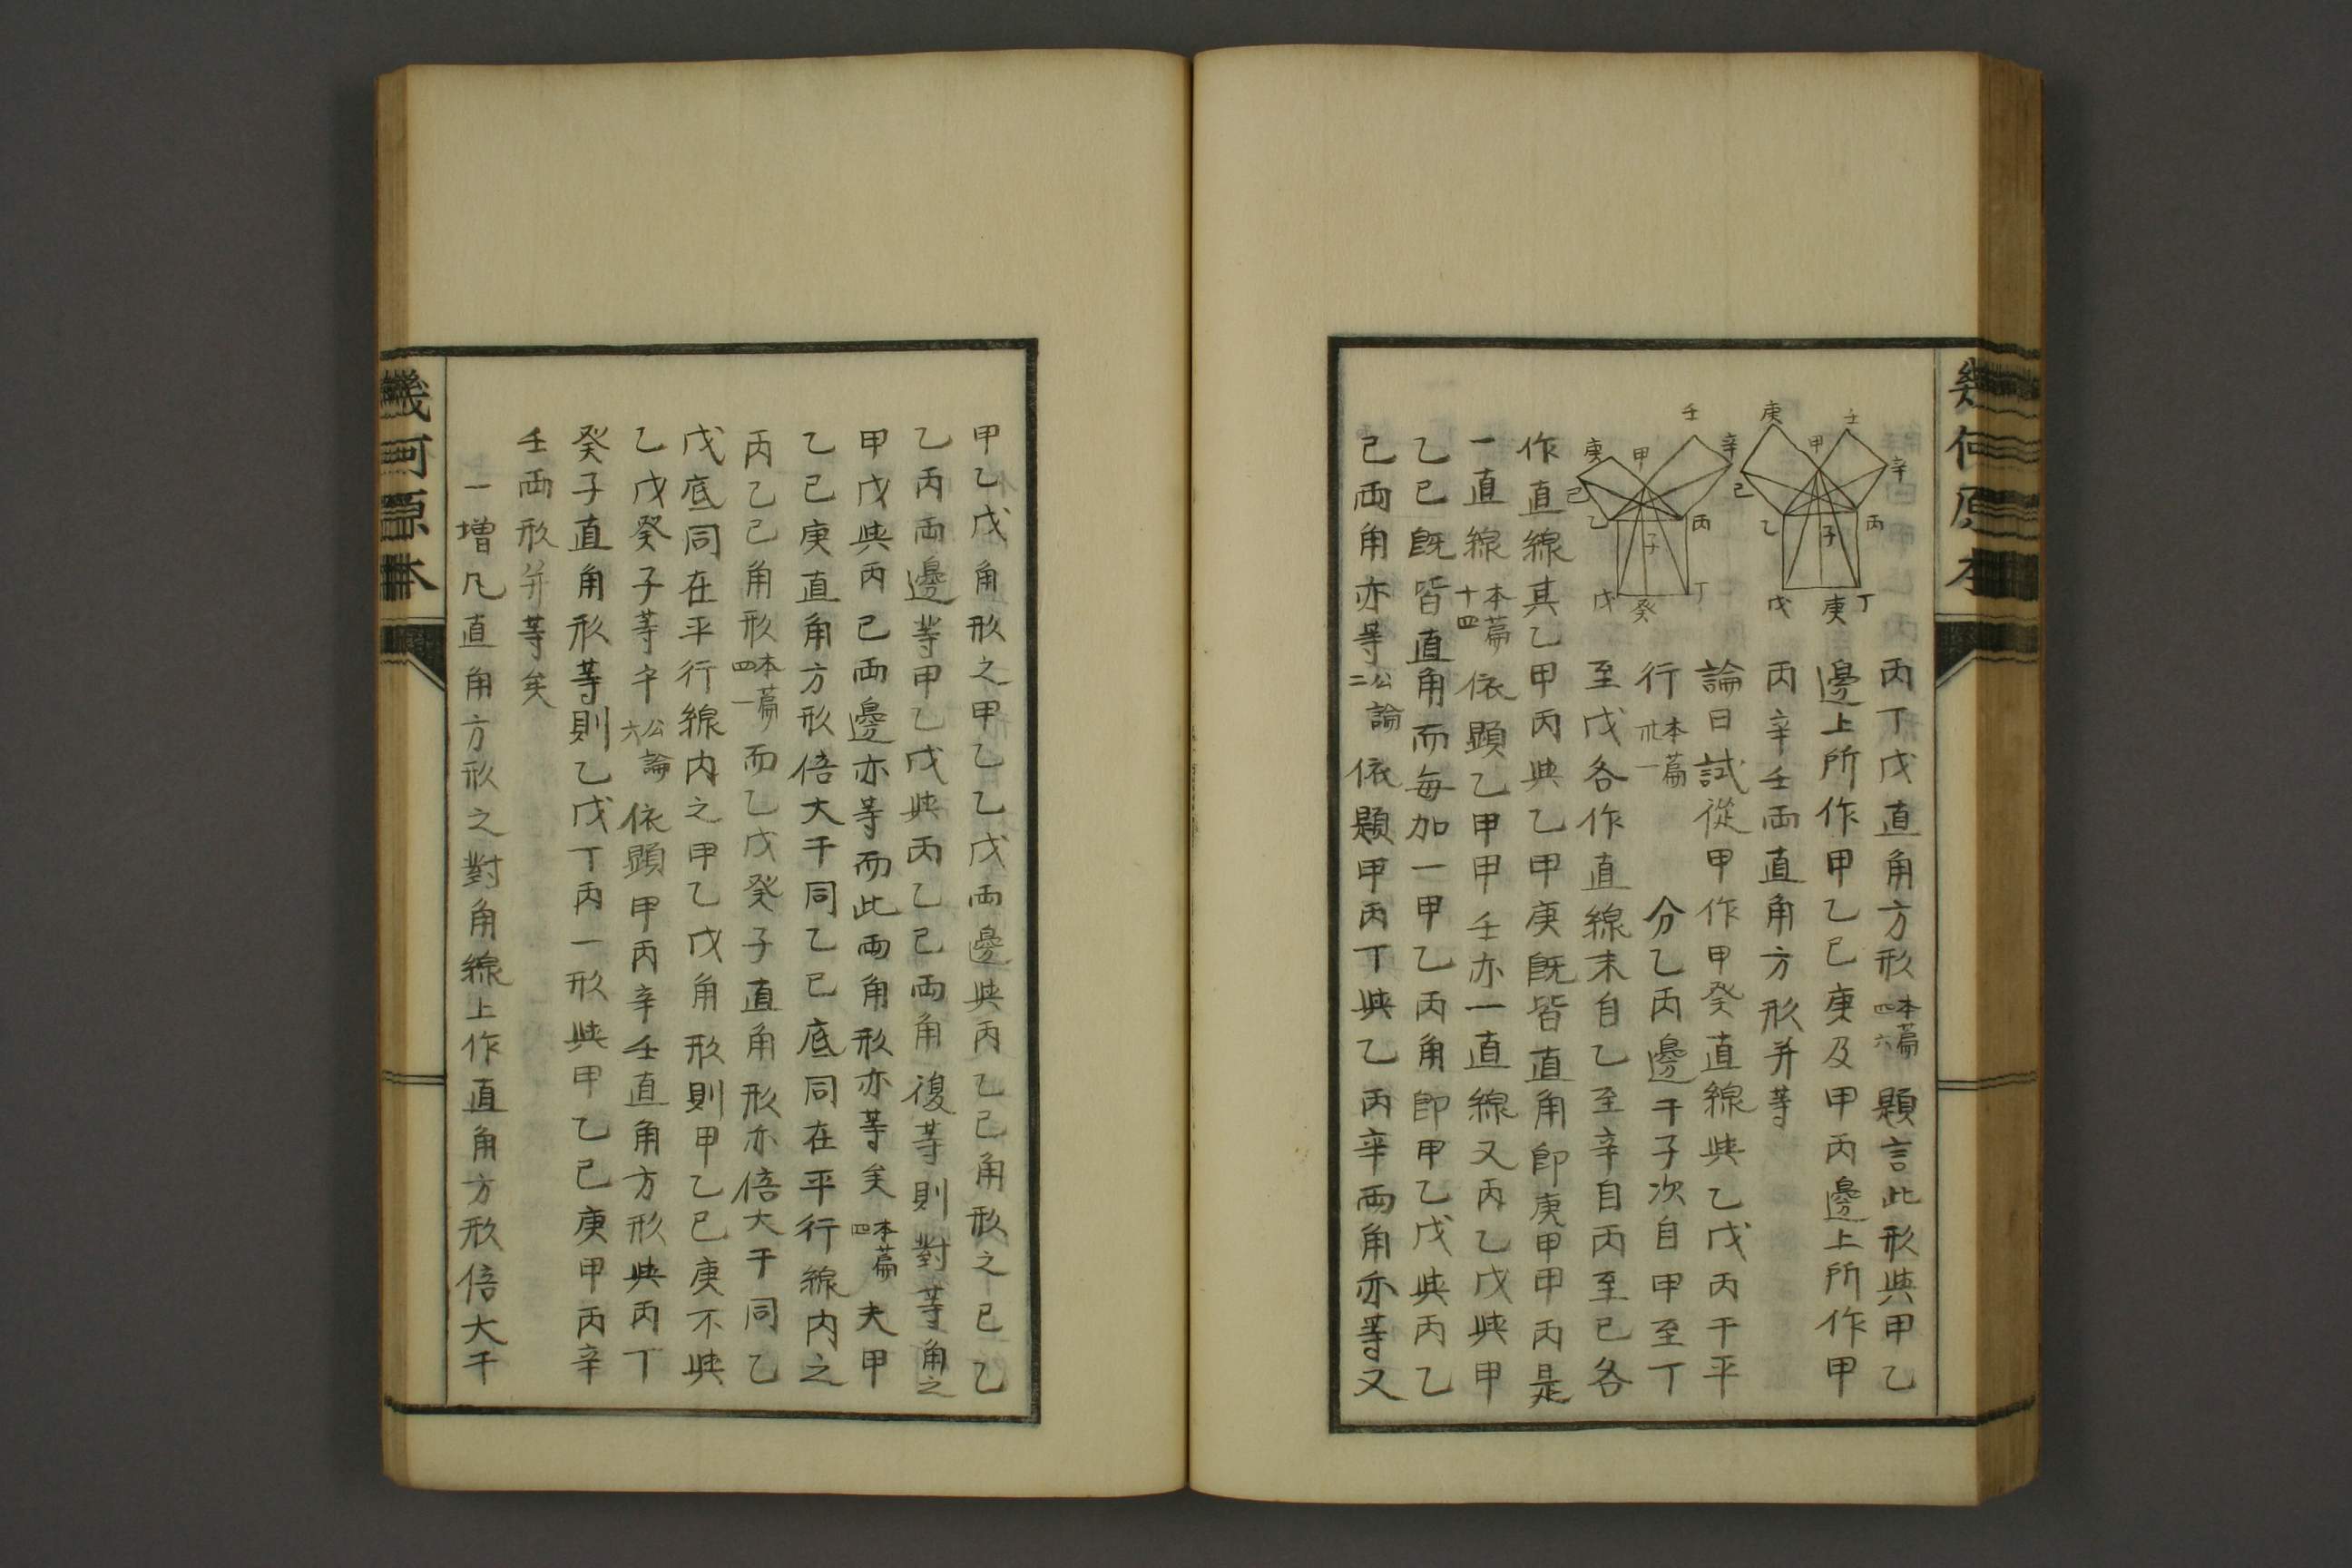 幾何原本
壬
庚
壬
庚
甲
辛
甲
辛
己
己
乙
丙
乙
丙
子
子
戊
癸
丁
戊
庚
丁
丙丁戊直角方形本篇四六題言此形與甲乙
邊上所作甲乙已庚及甲丙邊上所作甲
丙辛壬両直角方形并等
論曰試從甲作甲癸直線與乙戊丙干平
行本篇卅一分乙丙邊干子次自甲至丁
至戊各作直線末自乙至辛自丙至已各
作直線其乙甲丙與乙甲庚既皆直角即庚甲甲丙是
一直線本篇十四依顯乙甲甲壬亦一直線又丙乙戊與甲
乙已既皆直角而每加一甲乙丙角即甲乙戊與丙乙
已両角亦等公論二依題甲丙丁與乙丙辛両角亦等又
甲乙戊角形之甲乙乙戊両邊與丙乙已角形之已乙
乙丙両邊等甲乙戊與丙乙已両角復等則對等角之
甲戊與丙已両邊亦等而此両角形亦等矣本篇四夫甲
乙已庚直角方形倍大干同乙已底同在平行線内之
丙乙已角形本篇四一而乙戊癸子直角形亦倍大干同乙
戊底同在平行線内之甲乙戊角形則甲乙已庚不與
乙戊癸子等乎公論六依顯甲丙辛壬直角方形與丙丁
癸子直角形等則乙戊丁丙一形與甲乙已庚甲丙辛
壬両形并等矣
一增凡直角方形之對角線上作直角方形倍大干
幾何原本